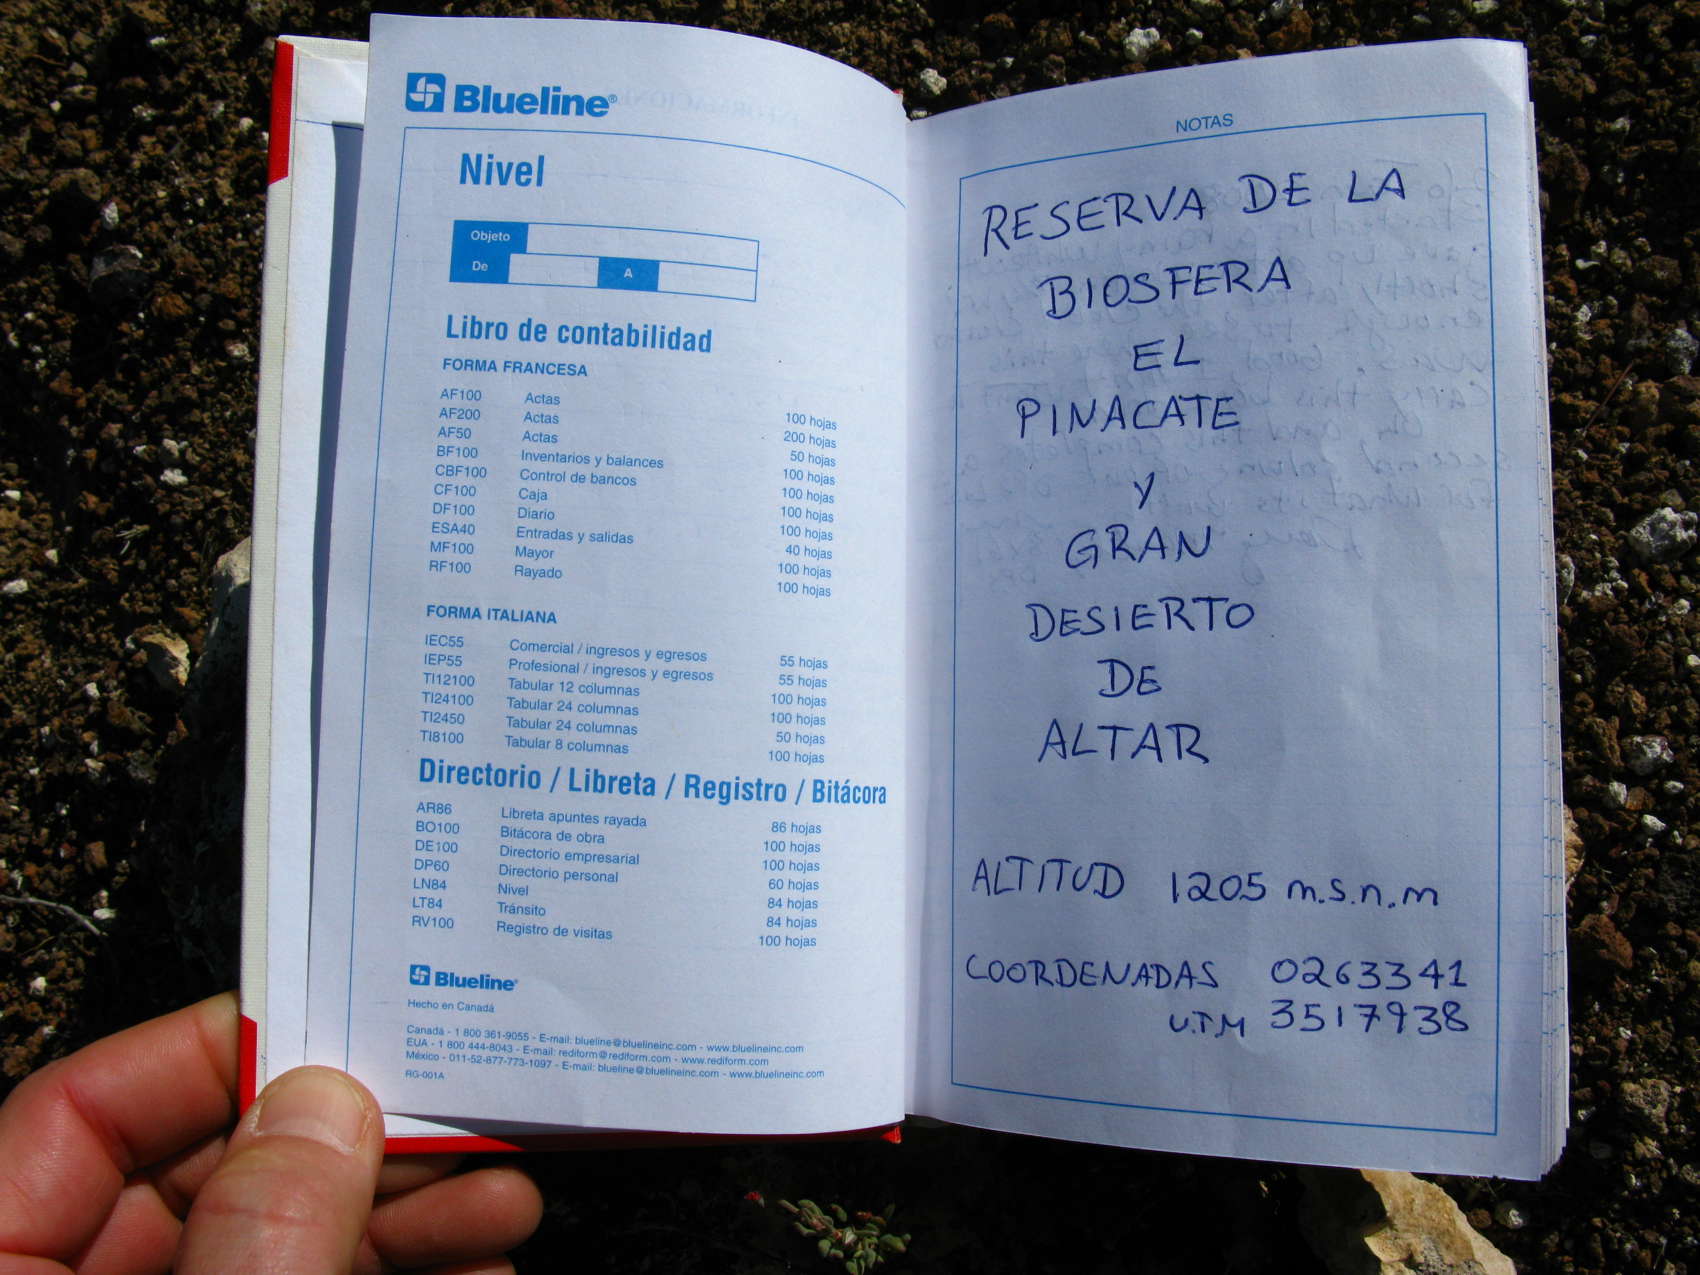 Blueline®
Nivel
Objeto
De A
Libro de contabilidad
FORMA FRANCESA
AF100 Actas 100 hojas
AF200 Actas 200 hojas
AF50 Actas 50 hojas
BF100 Inventarios y balances 100 hojas
CBF100 Control de bancos 100 hojas
CF100 Caja 100 hojas
DF100 Diario 100 hojas
ESA40 Entradas y salidas 40 hojas
MF100 Mayor 100 hojas
RF100 Rayado 100 hojas
FORMA ITALIANA
IEC55 Comercial / ingresos y egresos 55 hojas
IEP55 Profesional / ingresos y egresos 55 hojas
TI12100 Tabular 12 columnas 100 hojas
TI24100 Tabular 24 columnas 100 hojas
TI2450 Tabular 24 columnas 50 hojas
TI8100 Tabular 8 columnas 100 hojas
Directorio / Libreta / Registro / Bitácora
AR86 Libreta apuntes rayada 86 hojas
BO100 Bitácora de obra 100 hojas
DE100 Directorio empresarial 100 hojas
DP60 Directorio personal 60 hojas
LN84 Nivel 84 hojas
LT84 Tránsito 84 hojas
RV100 Registro de visitas 100 hojas
Blueline®
Hecho en Canadá
Canadá - 1 800 361-9055 - E-mail: blueline@bluelineinc.com - www.bluelineinc.com
EUA - 1 800 444-8043 - E-mail: rediform@rediform.com - www.rediform.com
México - 011-52-877-773-1097 - E-mail: blueline@bluelineinc.com - www.bluelineinc.com
RG-001A
NOTAS
RESERVA DE LA
BIOSFERA
EL
PINACATE
Y
GRAN
DESIERTO
DE
ALTAR
ALTITUD 1205 m.s.n.m
COORDENADAS 0263341
U.T.M 3517938